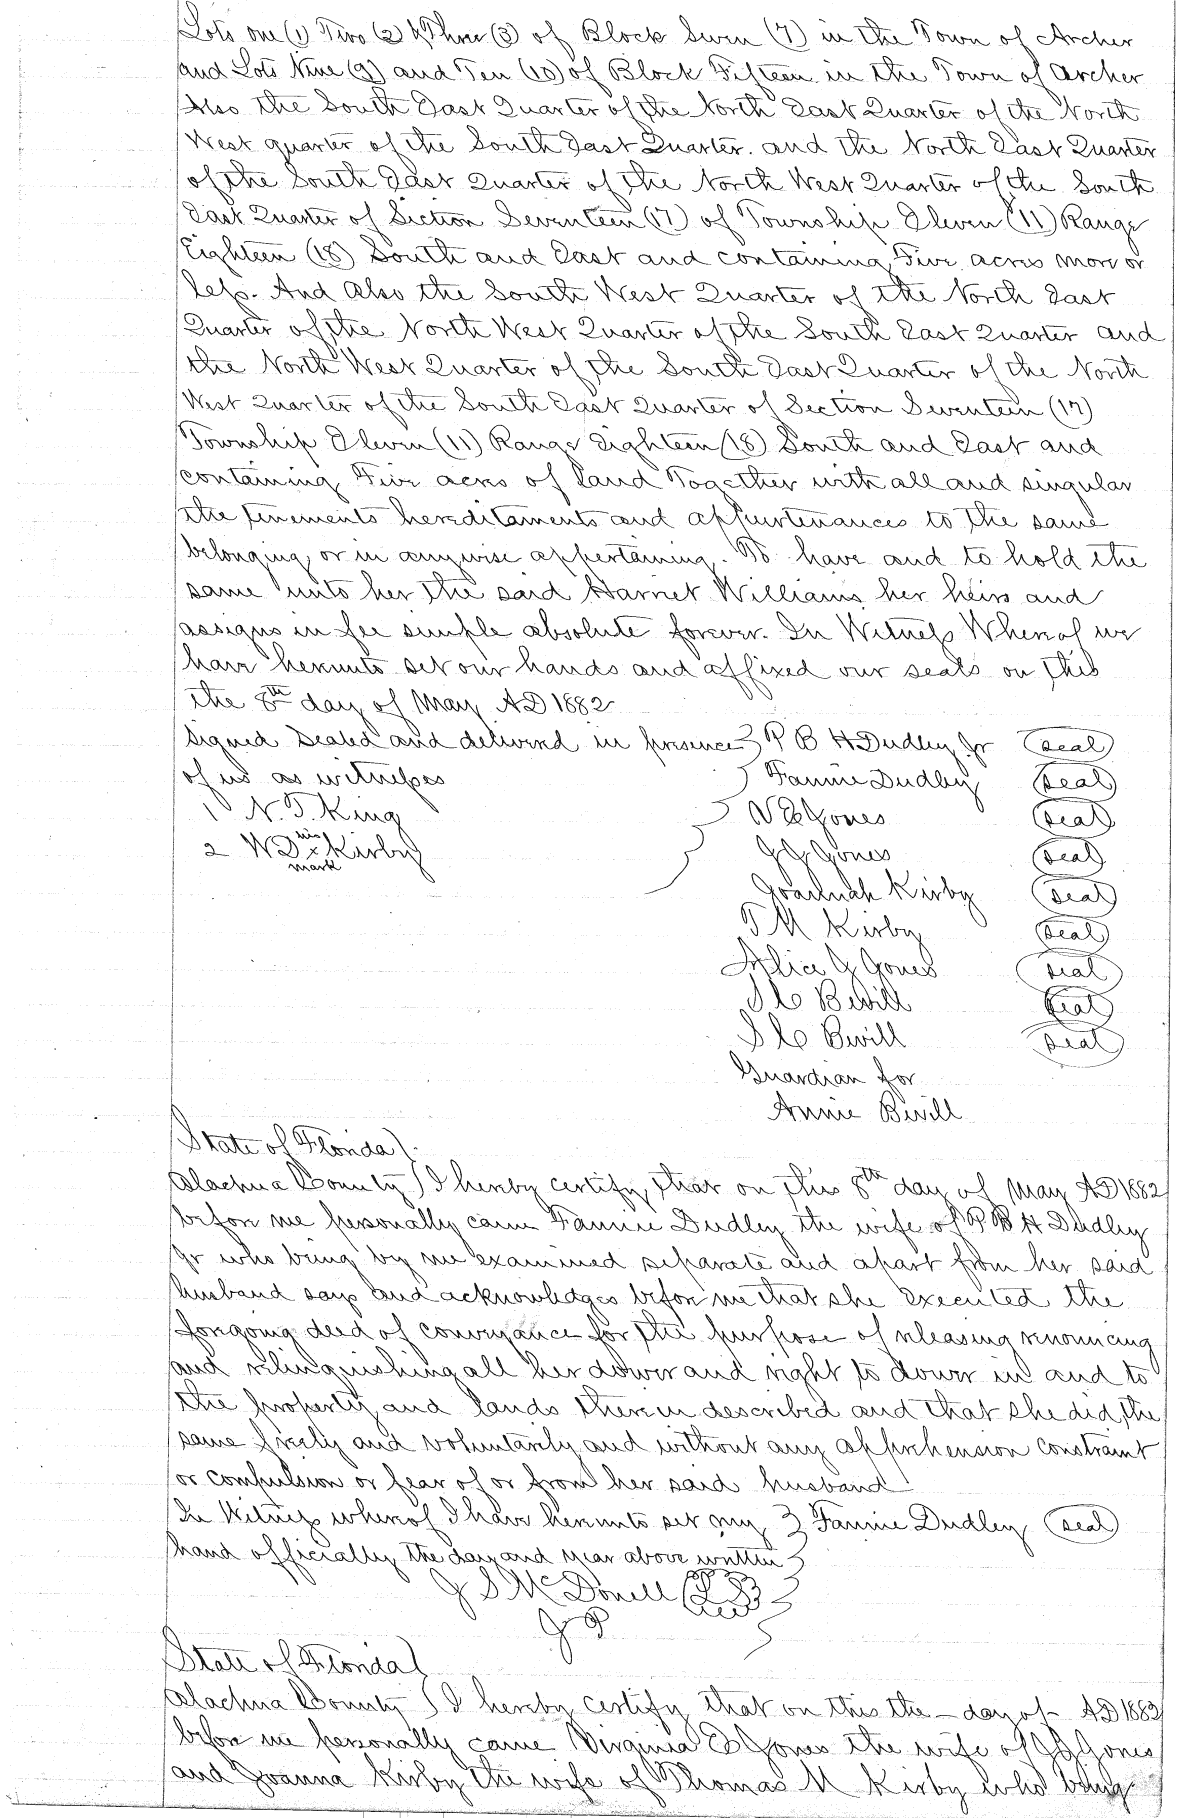 Lots one (1) Two (2) & Three (3) of Block Seven (7) in the Town of Archer
and Lots Nine (9) and Ten (10) of Block Fifteen in the Town of Archer
Also the South East Quarter of the North East Quarter of the North
West quarter of the South East Quarter. and the North East Quarter
of the South East Quarter of the North West Quarter of the South
East Quarter of Section Seventeen (17) of Township Eleven (11) Range
Eighteen (18) South and East and containing Five acres more or
less. And also the South West Quarter of the North East
Quarter of the North West Quarter of the South East Quarter and
the North West Quarter of the South East Quarter of the North
West Quarter of the South East Quarter of Section Seventeen (17)
Township Eleven (11) Range Eighteen (18) South and East and
containing Five acres of land Together with all and singular
the tenements hereditaments and appurtenances to the same
belonging or in anywise appertaining. To have and to hold the
same unto her the said Harriet Williams her heirs and
assigns in fee simple absolute forever. In Witness Whereof we
have hereunto set our hands and affixed our seals on this
the 8th day of May AD 1882
Signed Sealed and delivered in presence P B H Dudley Jr (seal)
of us as witnesses Fannie Dudley (seal)
1 N. T. King V E Jones (seal)
2 W D his x mark Kirby J J Jones (seal)
Joannah Kirby (seal)
T M Kirby (seal)
Alice J Jones (seal)
S C Bevill (seal)
S C Bevill (seal)
Guardian for
Annie Bevill
State of Florida)
Alachua County) I hereby certify that on this 8th day of May AD 1882
before me personally came Fannie Dudley the wife of P B H Dudley
Jr who being by me examined separate and apart from her said
husband says and acknowledges before me that she executed the
foregoing deed of conveyance for the purpose of releasing renouncing
and relinquishing all her dower and right to dower in and to
the property and lands therein described and that she did the
same freely and voluntarily and without any apprehension constraint
or compulsion or fear of or from her said husband
In Witness whereof I have hereunto set my Fannie Dudley (seal)
hand officially the day and year above written
J S McDonell
J P
State of Florida)
Alachua County) I hereby certify that on this the - day of - AD 1882
before me personally came Virginia E Jones the wife of J J Jones
and Joanna Kirby the wife of Thomas M Kirby who being